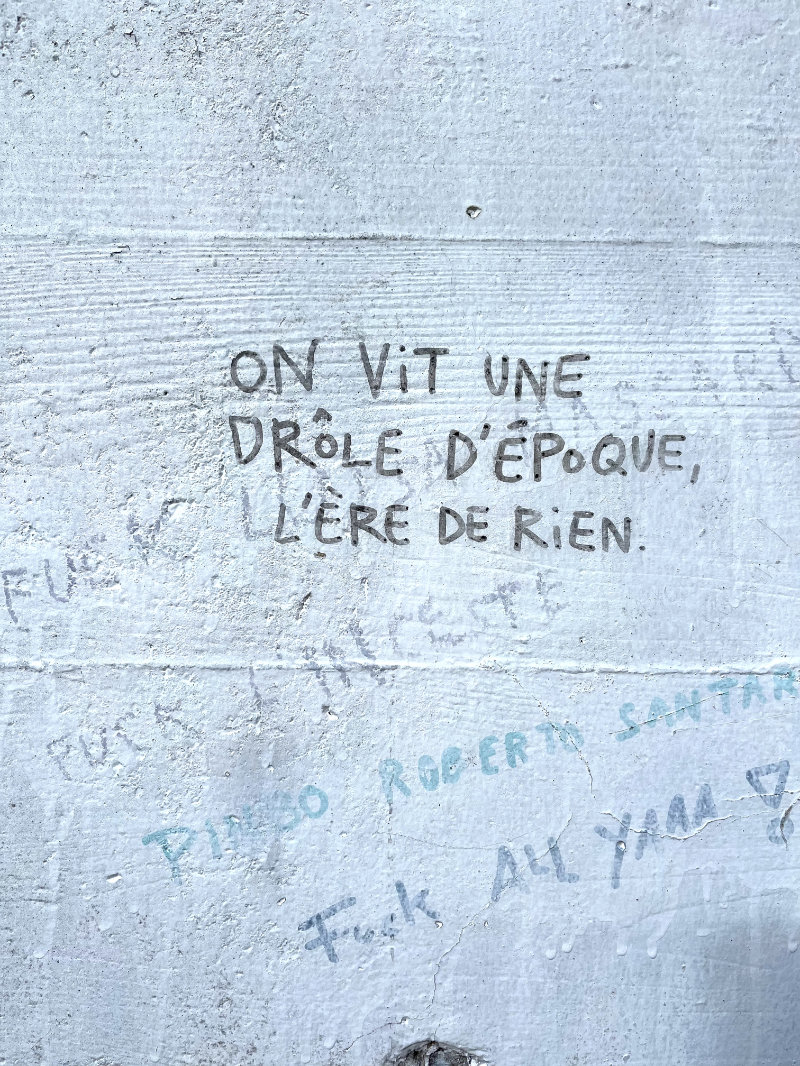 ON ViT UNE
DRÔLE D'ÉPOQUE,
L'ÈRE DE RiEN.
FUCK
FUCK
ROBERTO SANTAR
Fuck ALL YAAA !